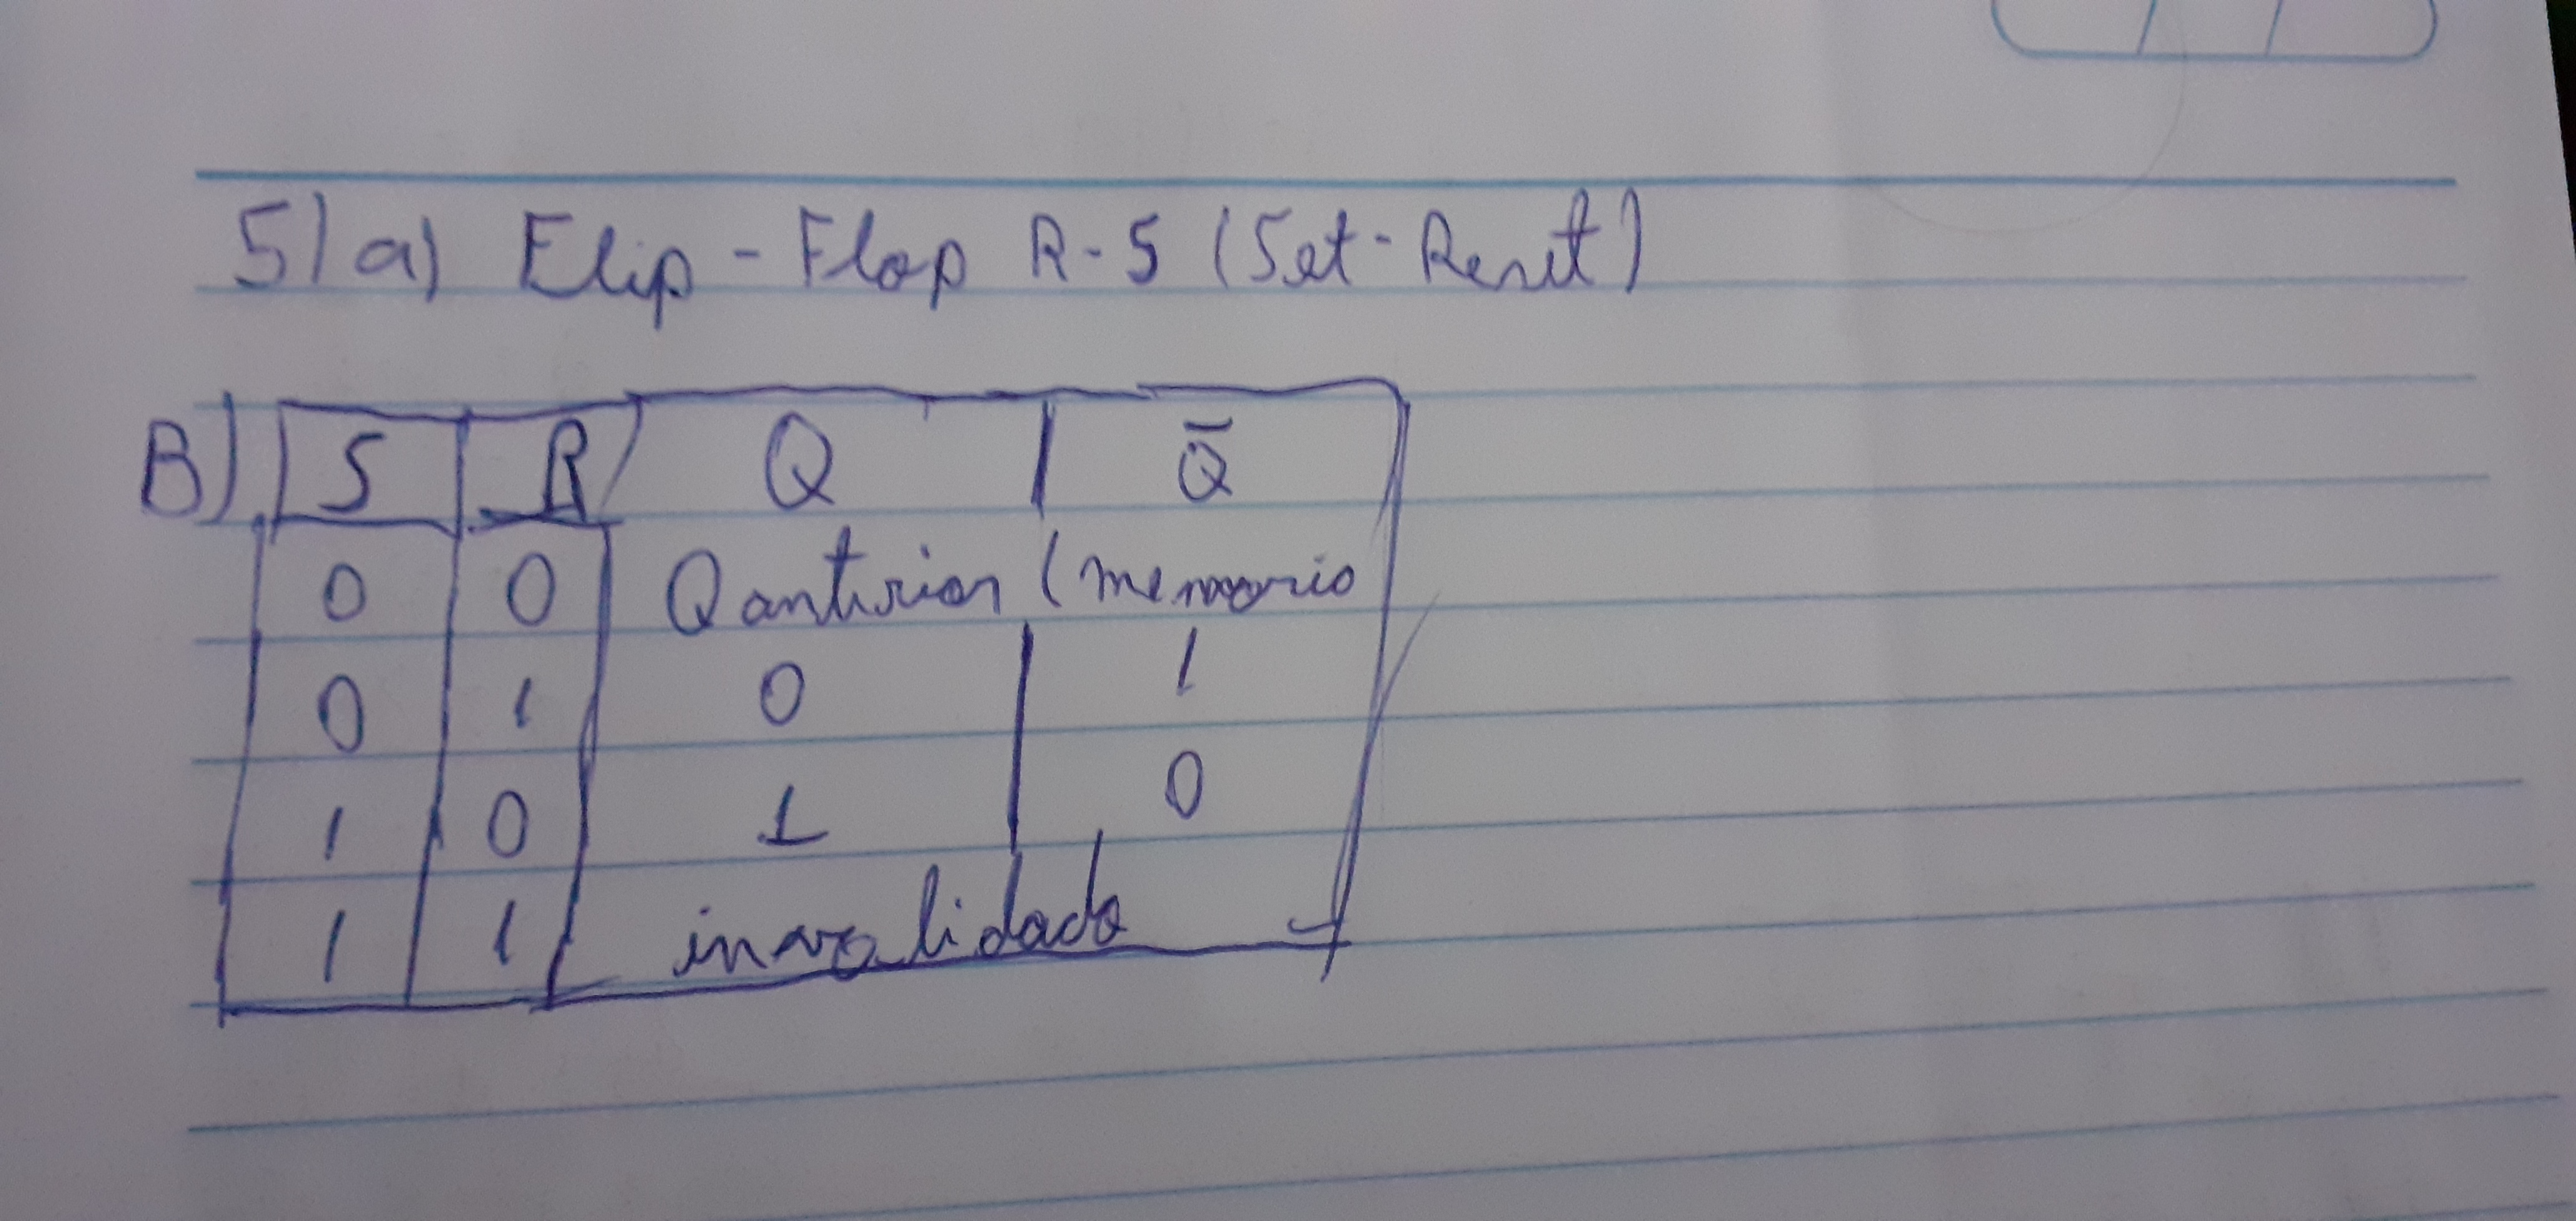 5) a) Flip - Flop R-S (Set-Reset)
B) S R Q Q̄
0 0 Q anterior (memorio
0 1 0 1
1 0 1 0
1 1 invalidado